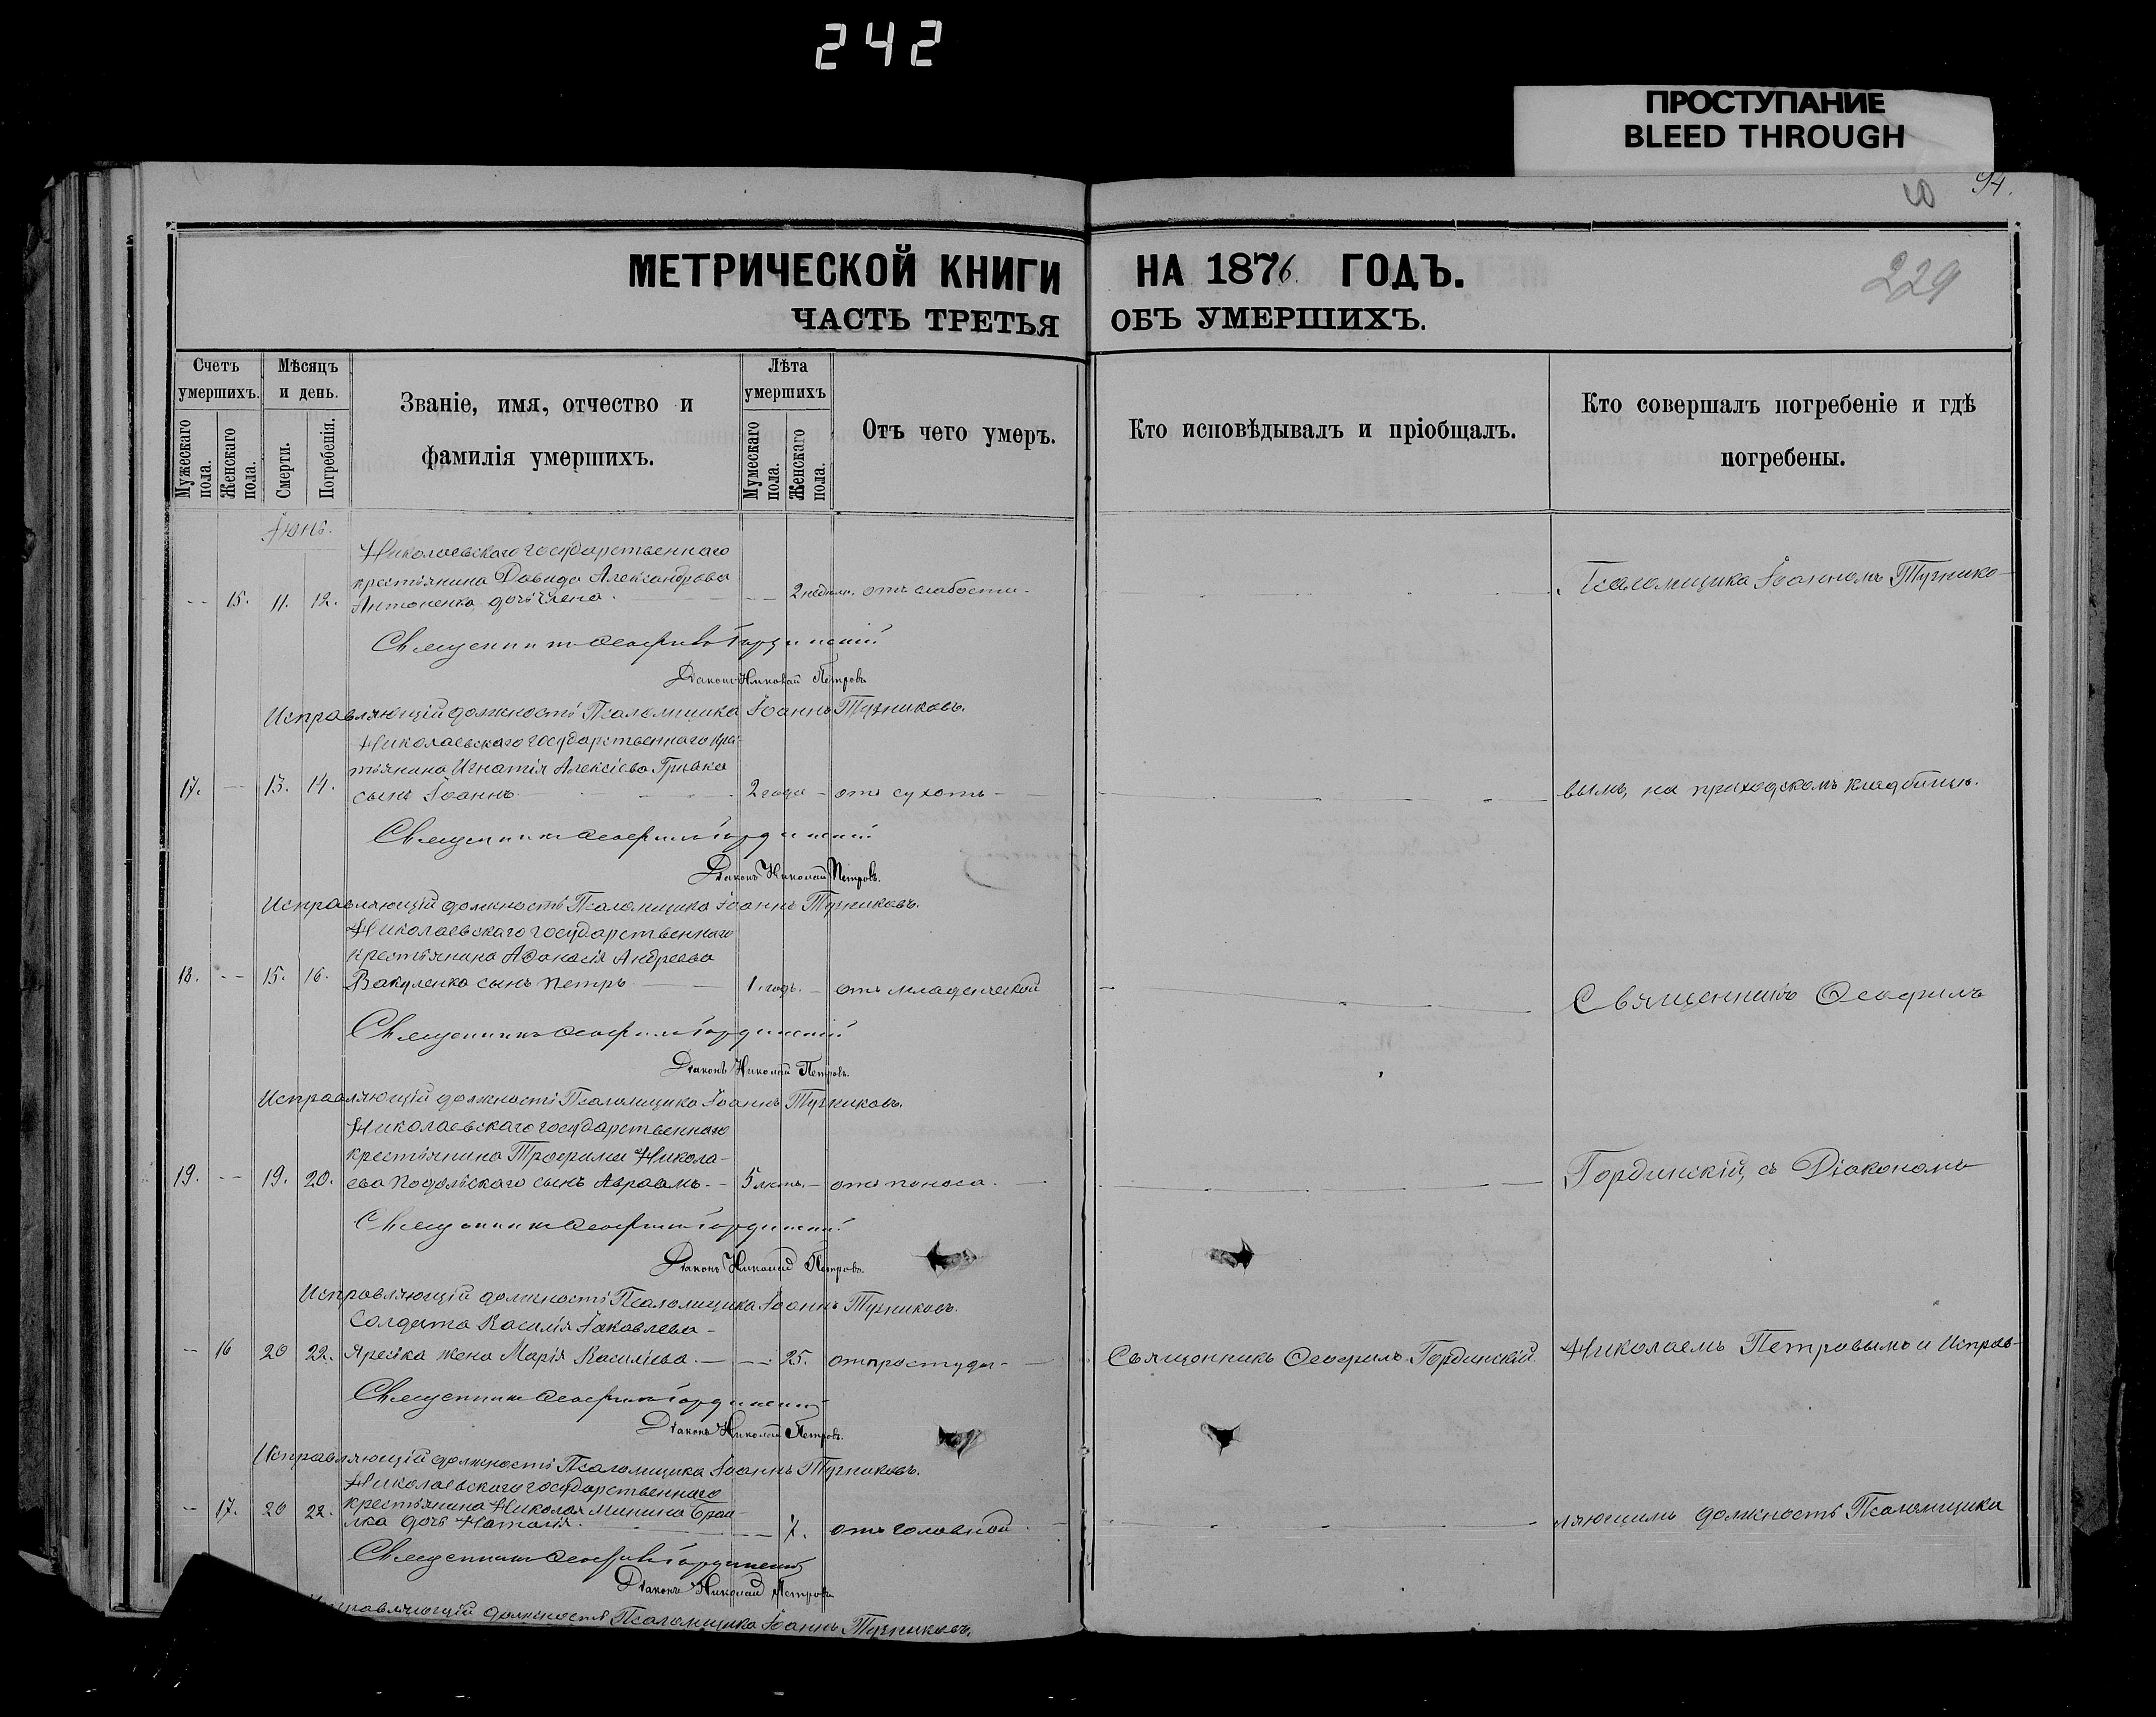 242
ПРОСТУПАНИЕ
BLEED THROUGH
94.
229
МЕТРИЧЕСКОЙ КНИГИ НА 1876 ГОДЪ.
ЧАСТЬ ТРЕТЬЯ ОБЪ УМЕРШИХЪ.
Счетъ умершихъ.
Мужескаго пола.
Женскаго пола.
Мѣсяцъ и день.
Смерти.
Погребенія.
Званіе, имя, отчество и
фамилія умершихъ.
Лѣта умершихъ
Мужескаго пола.
Женскаго пола.
Отъ чего умеръ.
Кто исповѣдывалъ и пріобщалъ.
Кто совершалъ погребеніе и гдѣ
погребены.
Іюнь.
Николаевскаго государственнаго
крестьянина Давида Александрова
15. 11. 12. Антоненка дочь Елена 2 недѣли. отъ слабости. Псаломщика Іоанномъ Тузнико-
Священникъ Ѳеофилъ Гординскій
Діаконъ Николай Петровъ
Исправляющій должность Псаломщика Іоаннъ Тузниковъ.
Николаевскаго государственнаго крес-
тьянина Игнатія Алексіева Гривка
17. 13. 14. сынъ Іоаннъ 2 года отъ сухотъ вымъ, на приходскомъ кладбищѣ.
Священникъ Ѳеофилъ Гординскій
Діаконъ Николай Петровъ.
Исправляющій должность Псаломщика Іоаннъ Тузниковъ.
Николаевскаго государственнаго
крестьянина Аѳанасія Андреева
18. 15. 16. Вакуленка сынъ Петръ 1. годъ. отъ младенческой Священникъ Ѳеофилъ
Священникъ Ѳеофилъ Гординскій
Діаконъ Николай Петровъ.
Исправляющій должность Псаломщика Іоаннъ Тузниковъ.
Николаевскаго государственнаго
крестьянина Трофима Никола-
19. 19. 20. ева Подольскаго сынъ Авраамъ. 5 лѣтъ. отъ поноса. Гординскій, съ Діакономъ
Священникъ Ѳеофилъ Гординскій
Діаконъ Николай Петровъ.
Исправляющій должность Псаломщика Іоаннъ Тузниковъ.
Солдата Василія Іаковлева
16 20 22. Ярейка жена Марія Василіева. 25. отъ простуды Священникъ Ѳеофилъ Гординскій Николаемъ Петровымъ и Исправ-
Священникъ Ѳеофилъ Гординскій
Діаконъ Николай Петровъ.
Исправляющій должность Псаломщика Іоаннъ Тузниковъ.
Николаевскаго государственнаго
крестьянина Николая Минина
17. 20 22. дочь Наталія. отъ головной ляющимъ должность Псаломщика
Священникъ Ѳеофилъ Гординскій
Діаконъ Николай Петровъ
Исправляющій должность Псаломщика Іоаннъ Тузниковъ.